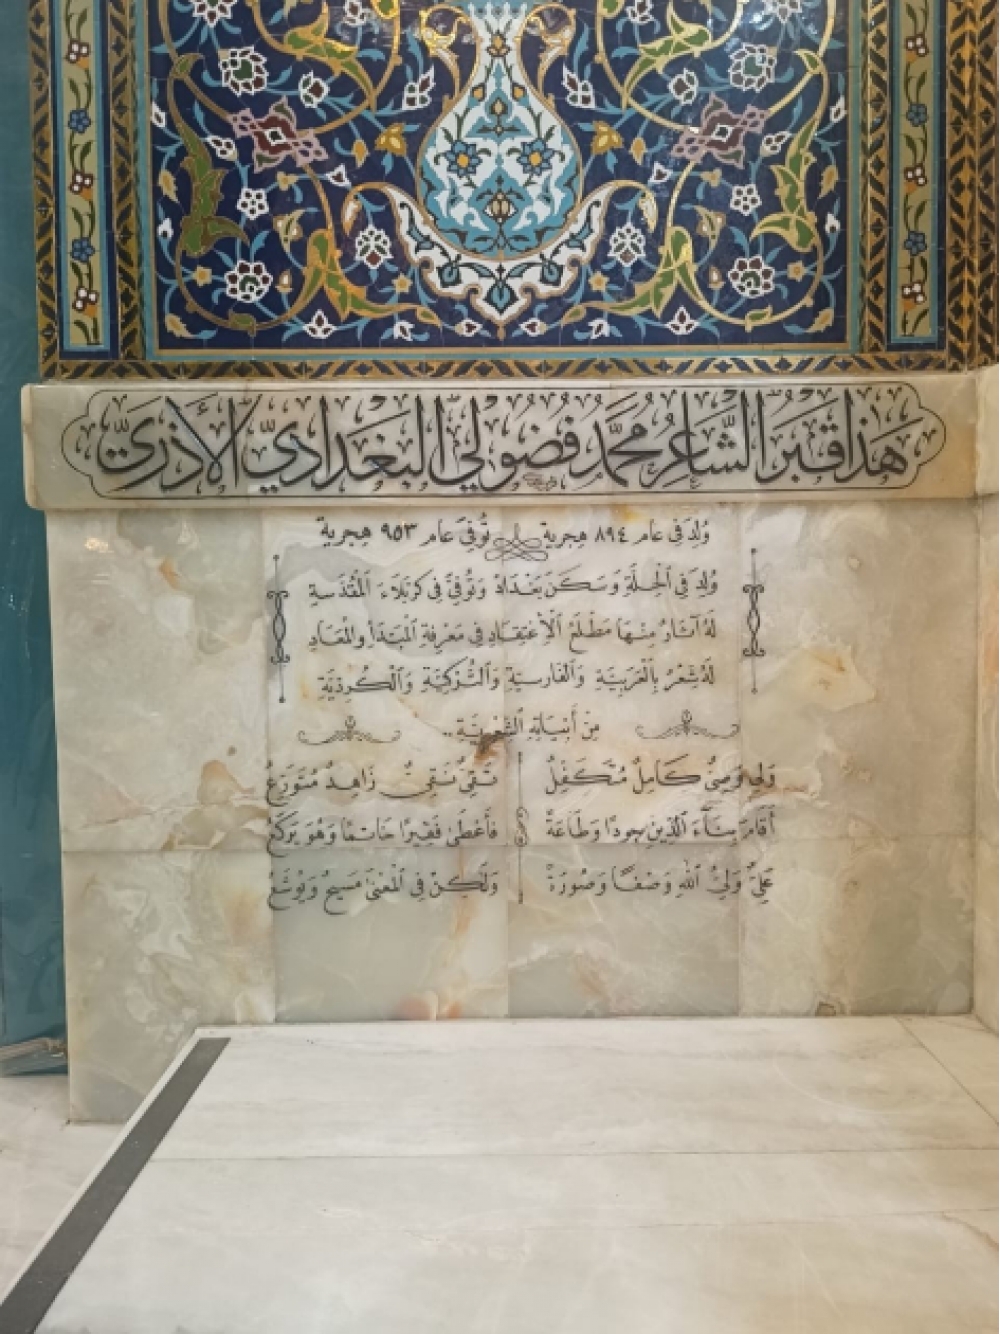 هَذَا قَبْرُ الشَّاعِرِ مُحَمَّد فُضُولِي الْبَغْدَادِيّ الْأَذَرِيّ
وُلِدَ فِي عام ٨٩٤ هجرية تُوُفِّيَ عام ٩٥٣ هجرية
وُلِدَ فِي الْحِلَّةِ وَسَكَنَ بَغْدَادَ وَتُوُفِّيَ فِي كَرْبَلَاءَ الْمُقَدَّسَةِ
لَهُ آثَارٌ مِنْهَا مَطْلَعُ الْاِعْتِقَادِ فِي مَعْرِفَةِ الْمَبْدَأِ وَالْمَعَادِ
لَهُ شِعْرٌ بِالْعَرَبِيَّةِ وَالْفَارِسِيَّةِ وَالتُّرْكِيَّةِ وَالْكُرْدِيَّةِ
مِنْ أَبْيَاتِهِ الشِّعْرِيَّةِ ..
وَلِيٌّ وَصِيٌّ كَامِلٌ مُتَكَفِّلٌ تَقِيٌّ نَقِيٌّ زَاهِدٌ مُتَوَرِّعٌ
أَقَامَ بِنَاءَ الدِّينِ جُودًا وَطَاعَةً فَأَعْطَى فَقِيرًا خَاتَمًا وَهُوَ يَرْكَعُ
عَلِيٌّ وَلِيُّ اللهِ وَصْفًا وَصُورَةً وَلَكِنْ فِي الْمَعْنَى مَسِيحٌ وَيُوشَعُ